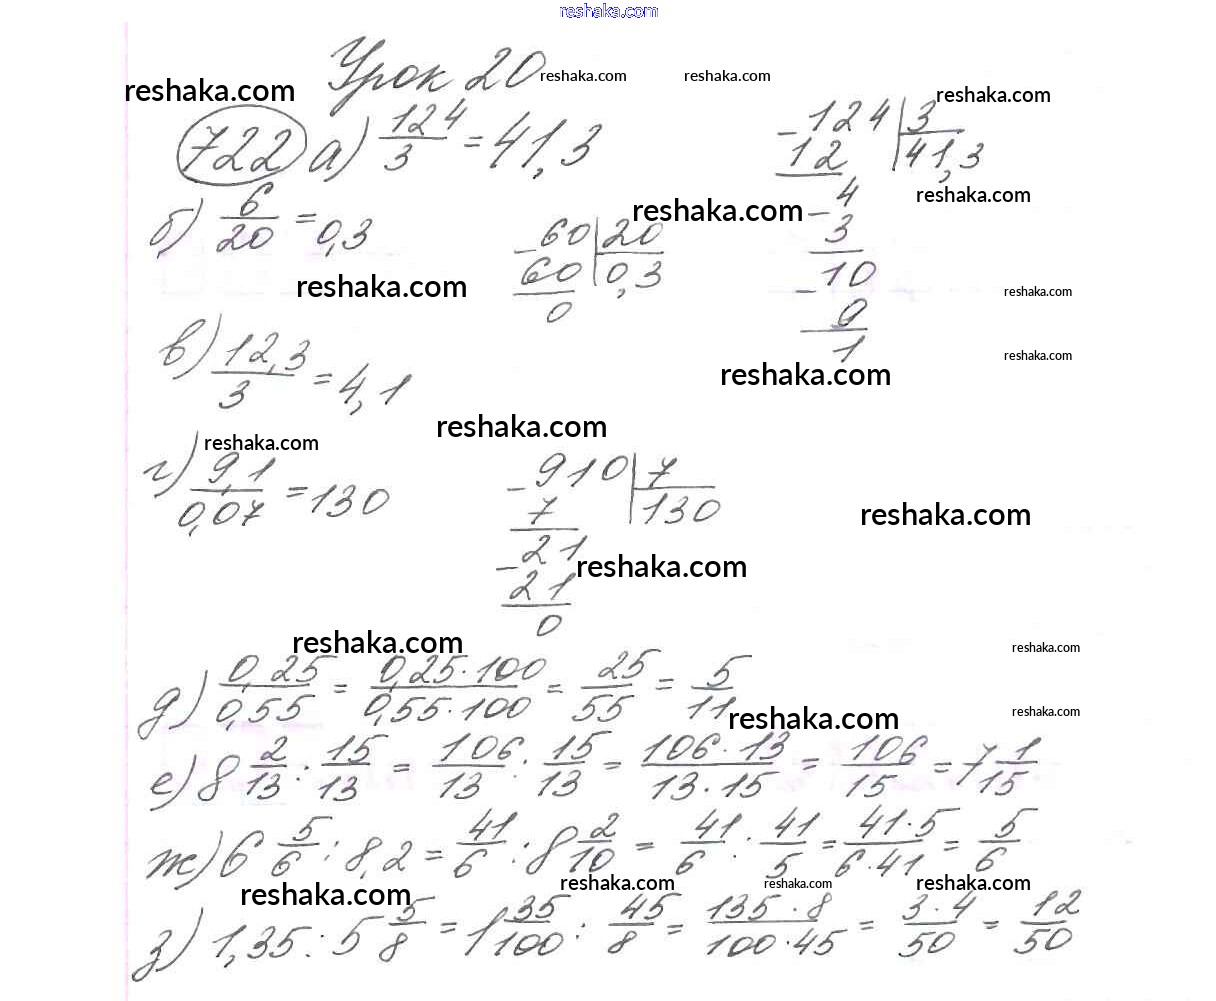 reshaka.com
Урок 20 reshaka.com reshaka.com
reshaka.com reshaka.com
722 а) 124/3 = 41,3
-124 | 3
12 | 41,3
-4
3
-10
9
1
reshaka.com
б) 6/20 = 0,3
-60 | 20
60 | 0,3
0
reshaka.com
reshaka.com
reshaka.com
reshaka.com
в) 12,3/3 = 4,1
reshaka.com
reshaka.com
reshaka.com
г) 9,1/0,07 = 130
-910 | 7
7 | 130
-21
21
0
reshaka.com
reshaka.com
reshaka.com
reshaka.com
д) 0,25/0,55 = 0,25·100/0,55·100 = 25/55 = 5/11
reshaka.com
reshaka.com
е) 8 2/13 : 15/13 = 106/13 : 15/13 = 106·13/13·15 = 106/15 = 7 1/15
ж) 6 5/6 : 8,2 = 41/6 : 8 2/10 = 41/6 : 41/5 = 41·5/6·41 = 5/6
reshaka.com reshaka.com reshaka.com reshaka.com
з) 1,35 : 5 5/8 = 1 35/100 : 45/8 = 135·8/100·45 = 3·4/50 = 12/50